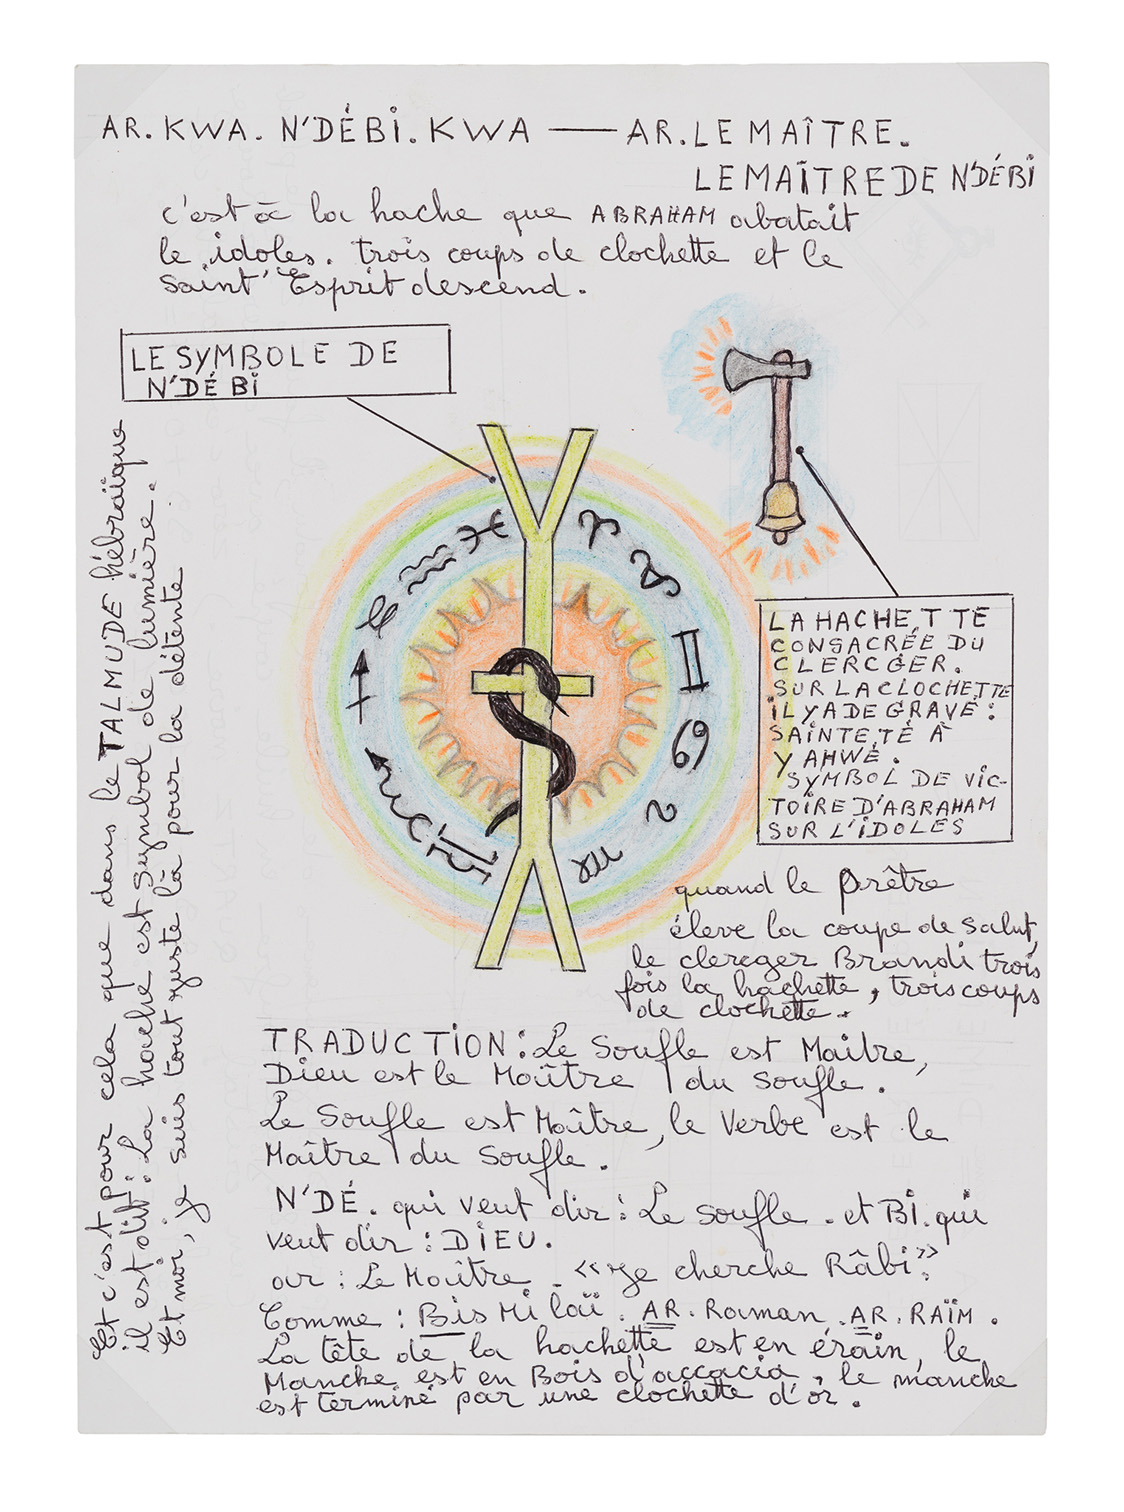 AR. KWA. N'DÉBI. KWA — AR. LE MAÎTRE.
LE MAÎTRE DE N'DÉBI
c'est à la hache que ABRAHAM abatait
le idoles. trois coups de clochette et le
Saint'Esprit descend.
LE SYMBOLE DE
N'DÉBI
LA HACHETTE
CONSACRÉE DU
CLERCGER.
SUR LA CLOCHETTE
IL Y A DE GRAVÉ :
SAINTETÉ À
YAHWÉ.
SYMBOL DE VIC-
TOIRE D'ABRAHAM
SUR L'IDOLES
quand le prêtre
éleve la coupe de salut,
le clercger Brandi trois
fois la hachette, trois coups
de clochette.
TRADUCTION : Le Soufle est Maitre,
Dieu est le Maître du Soufle.
Le Soufle est Maître, le Verbe est le
Maître du Soufle.
N'DÉ. qui veut dir : Le soufle. et BI. qui
veut dir : DIEU.
our : Le Maître. «Je cherche Râbi».
Comme : Bis Mi laï. AR. Raman. AR. RAÏM.
La tête de la hachette est en érain, le
Manche est en Bois d'accacia, le manche
est terminé par une clochette d'or.
Et c'est pour cela que dans le TALMUDE hébraïque
il est dit : La hache est symbol de lumière.
Et moi, je suis tout juste là pour la détente